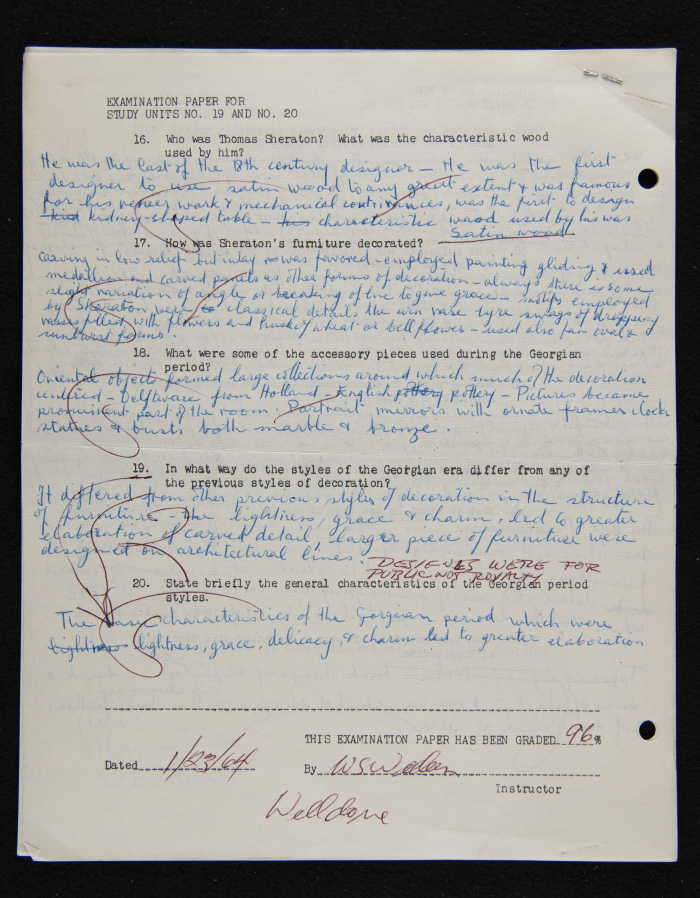 EXAMINATION PAPER FOR
STUDY UNITS NO. 19 AND NO. 20
16. Who was Thomas Sheraton? What was the characteristic wood
used by him?
He was the last of the 18th century designer - He was the first
designer to use satin wood to any great extent & was famous
for his veneer work & mechanical contrivances, was the first to design
kid kidney-shaped table - his characteristic wood used by his was
Satin wood
17. How was Sheraton's furniture decorated?
Carving in low relief but inlay was favored - employed painting gliding & used
medallion and carved panels as other forms of decoration - always there is some
slight variation of angle or breaking of line to give grace - motifs employed
by Sheraton were classical details the urn vase lyre swags of drapery
vases filled with flowers and husks of wheat or bell flower - used also fan ovals
sunburst forms.
18. What were some of the accessory pieces used during the Georgian
period?
Oriental object formed large collections around which much of the decoration
centred - Delftware from Holland - English pottery pottery - Pictures became
prominent part of the room. Portrait mirrors with ornate frames clocks
statues & busts both marble & bronze.
19. In what way do the styles of the Georgian era differ from any of
the previous styles of decoration?
It differed from other previous styles of decoration in the structure
of furniture - the lightness, grace & charm, led to greater
elaboration of carved detail, larger piece of furniture were
designed on architectural lines.
DESIGNES WERE FOR
PUBLIC NOT ROYALTY
20. State briefly the general characteristics of the Georgian period
styles.
The basic characteristics of the Gorgian period which were
lightness lightness, grace, delicacy, & charm led to greater elaboration
THIS EXAMINATION PAPER HAS BEEN GRADED 96%
Dated 1/23/64 By
Instructor
Well done